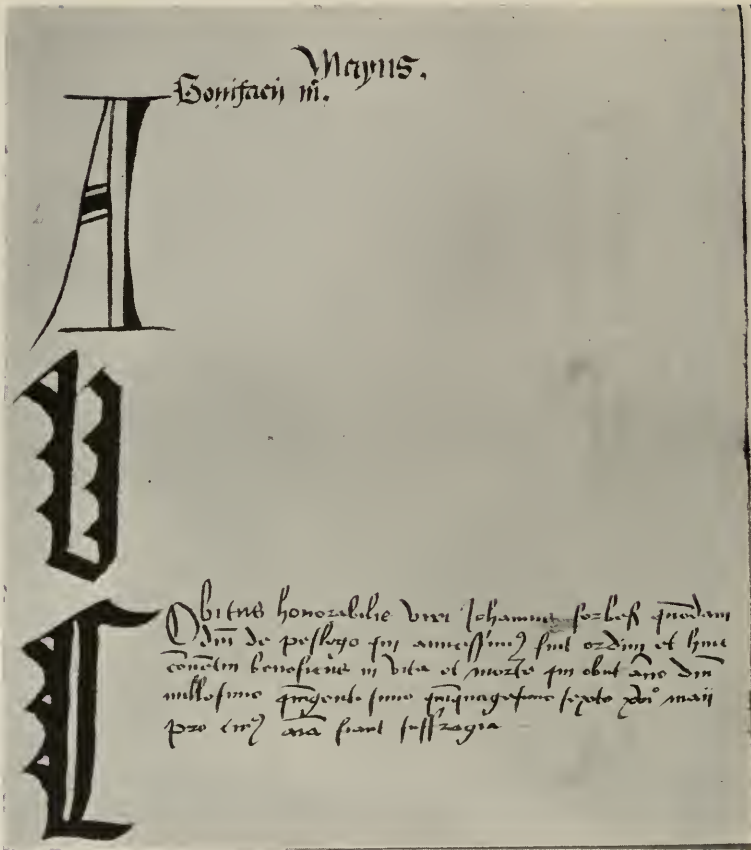 Mayus.
Bonifacii m̄.
A
b
c
Obitus honorabilis viri Johannis forbes quōdam
dn̄i de petslego qui amicissimꝰ fuit ordini et huic
cōuētui beneficus in vita et morte qui obiit año dn̄i
millesimo qīgentesimo qīquagesimo sexto xviº maii
pro cuiꝰ aīa fiant suffragia